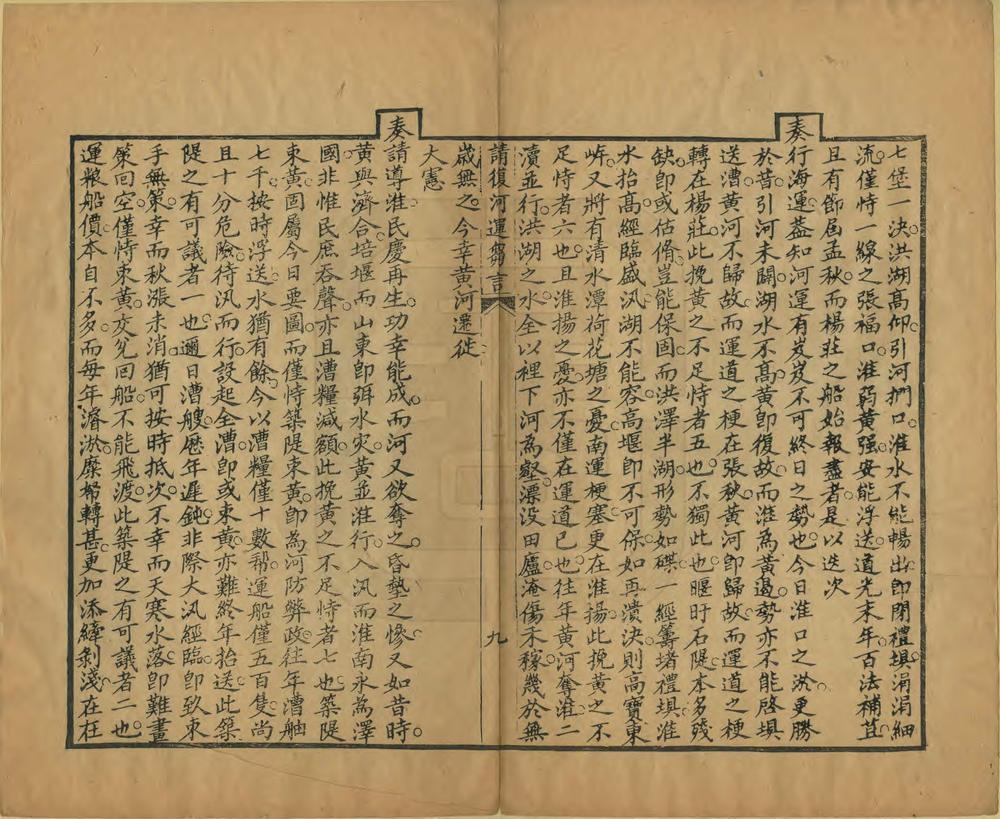 七堡一決洪湖高仰引河捫口淮水不能暢出即閉禮垻涓涓細
流僅恃一線之張福口淮弱黃强安能浮送道光末年百法補苴
且有節屆孟秋而楊莊之船始報盡者是以迭次
奏行海運葢知河運有岌岌不可終日之勢也今日淮口之淤更勝
於昔引河未闢湖水不髙黃即復故而淮為黃遏勢亦不能啓垻
送漕黃河不歸故而運道之梗在張秋黃河即歸故而運道之梗
轉在楊莊此挽黃之不足恃者五也不獨此也暱盱石隄本多殘
缺即或估脩豈能保固而洪澤半湖形勢如碟一經籌堵禮垻淮
水抬髙經臨盛汛湖不能容高堰即不可保如再潰決則高寶東
㟁又將有清水潭荷花塘之憂南運梗塞更在淮揚此挽黃之不
足恃者六也且淮揚之憂亦不僅在運道已也往年黃河奪淮二
瀆並行洪湖之水全以裡下河為壑漂没田廬淹傷禾稼幾於無
請復河運芻言
九
歲無之今幸黃河遷徙
大憲
奏請導淮民慶再生功幸能成而河又欲奪之昏墊之慘又如昔時
黃與濟合培堰而山東即弭水灾黃並淮行入汛而淮南永為澤
國非惟民庶吞聲亦且漕糧減額此挽黃之不足恃者七也築隄
東黃固屬今日要圖而僅恃築隄束黃即為河防弊政往年漕舳
七千按時浮送水猶有餘今以漕糧僅十數帮運船僅五百隻尚
且十分危險待汛而行設起全漕即或束黃亦難終年抬送此築
隄之有可議者一也邇日漕艘歷年遲鈍非際大汛經臨即致束
手無策幸而秋漲未消猶可按時抵次不幸而天寒水落即難畫
策回空僅恃束黃交兌回船不能飛渡此築隄之有可議者二也
運粮船價本自不多而每年濬淤糜帑轉甚更加添縴剝淺在在